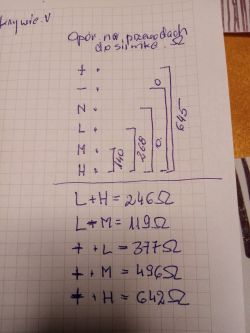 krywie. V
Opór na przewodach
do silnika. Ω
+ .
- .
N .
L .
M .
H .
140
268
0
0
645
L+H = 246Ω
L+M = 119Ω
+ + L = 377Ω
+ + M = 496Ω
+ + H = 642Ω